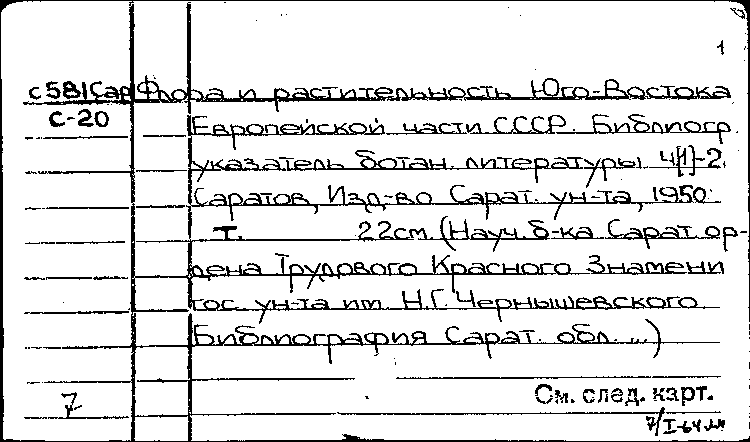 1
с581Сар Флора и растительность Юго-Востока
С-20
Европейской части СССР. Библиогр.
указатель ботан. литературы ч[1]-2.
Саратов, Изд-во Сарат. ун-та, 1950.
т. 22см. (Науч. б-ка Сарат. ор-
дена Трудового Красного Знамени
гос. ун-та им. Н.Г. Чернышевского.
Библиография Сарат. обл. ...)
См. след. карт.
7
7/I-64